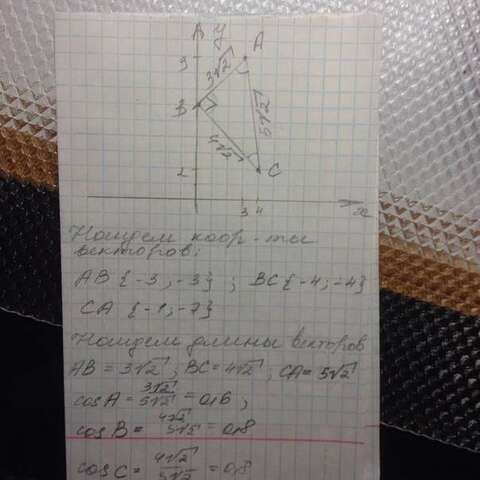 В У А
9
3√2
В
5√2
4√2
С
2
3 4 x
Найдем коор-ты
векторов:
AB {-3; -3} ; BC {-4; -4}
CA {-1; -7}
Найдем длины векторов
AB = 3√2 ; BC = 4√2 ; CA = 5√2
cos A = 3√2/5√2 = 0,6 ;
cos B = 4√2/5√2 = 0,8
cos C = 4√2/5√2 = 0,8